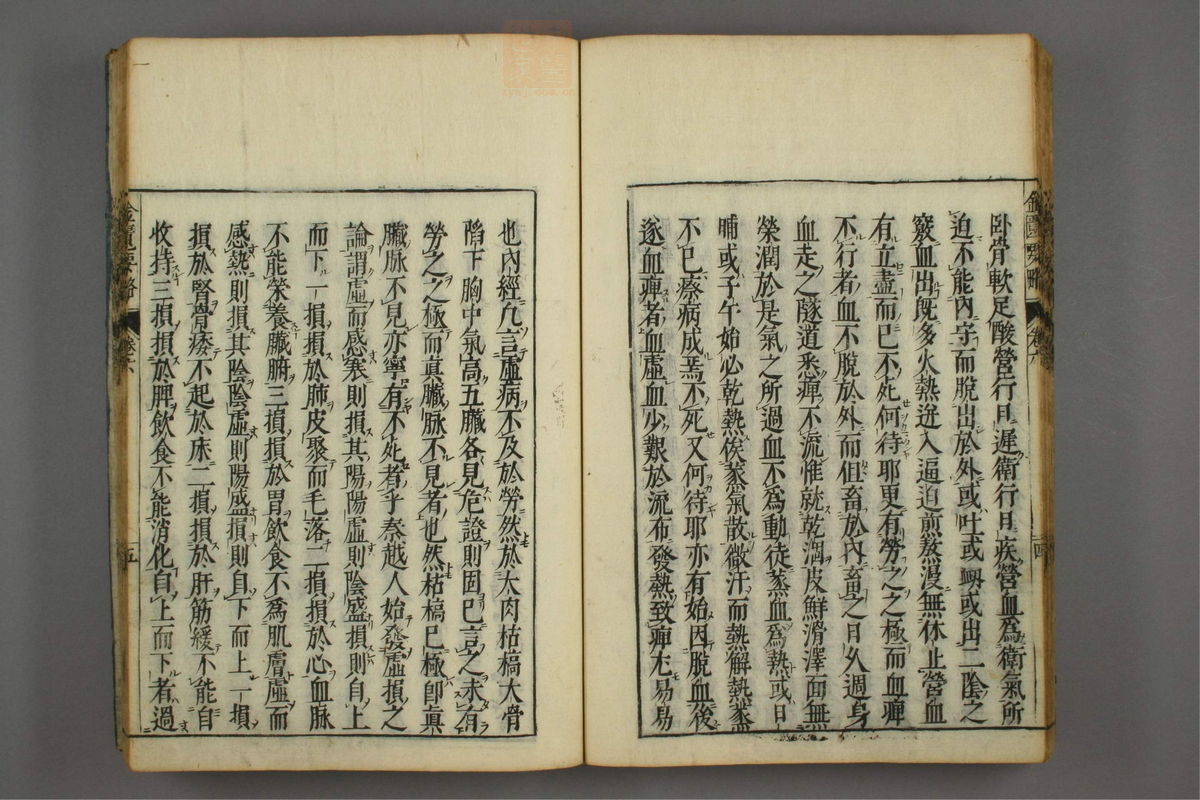 卧骨軟足酸營行日遲衛行日疾營血為衛氣所
迫不能內守而脫出於外或吐或衂或出二陰之
竅血出旣多火熱迸入逼迫煎熬漫無休止營血
有立盡而已不死何待耶更有勞之之極而血痺
不行者血不脫於外而但畜於內畜之日久週身
血走之隧道悉痺不流惟就乾涸皮鮮滑澤面無
榮潤於是氣之所過血不為動徒蒸血為熱或日
晡或子午始必乾熱俟蒸氣散微汗而熱解熱蒸
不已瘵病成焉不死又何待耶亦有始因脫血後
遂血痺者血虛血少艱於流布發熱致痺尤易易
金匱要略
卷六
四
也內經凢言虛病不及於勞然於大肉枯槁大骨
陷下胸中氣高五臟各見危證則固已言之未有
勞之之極而真臟脉不見者也然枯槁已極卽真
臟脉不見亦寧有不死者乎秦越人始發虛損之
論謂虛而感寒則損其陽陽虛則陰盛損則自上
而下一損損於肺皮聚而毛落二損損於心血脉
不能榮養臟腑三損損於胃飲食不為肌膚虛而
感熱則損其陰陰虛則陽盛損則自下而上一損
損於腎骨痿不起於床二損損於肝筋緩不能自
收持三損損於脾飲食不能消化自上而下者過
金匱要略
卷六
五